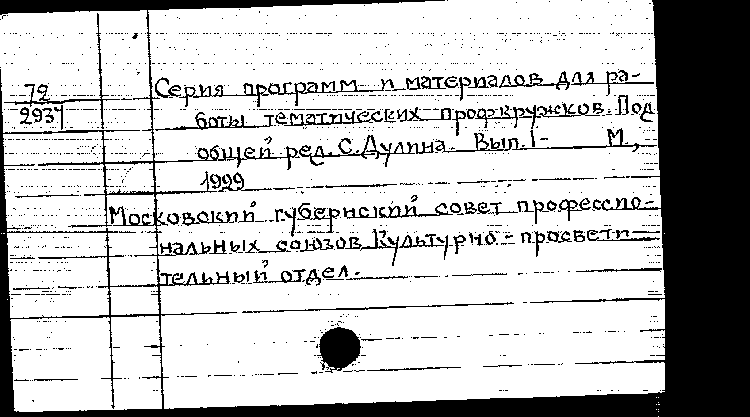 79
2934
Серия программ и материалов для ра-
боты тематических профкружков. Под
общей ред. С. Дулина. Вып. 1- М.,
1999
Московский губернский совет профессио-
нальных союзов. Культурно-просвети-
тельный отдел.